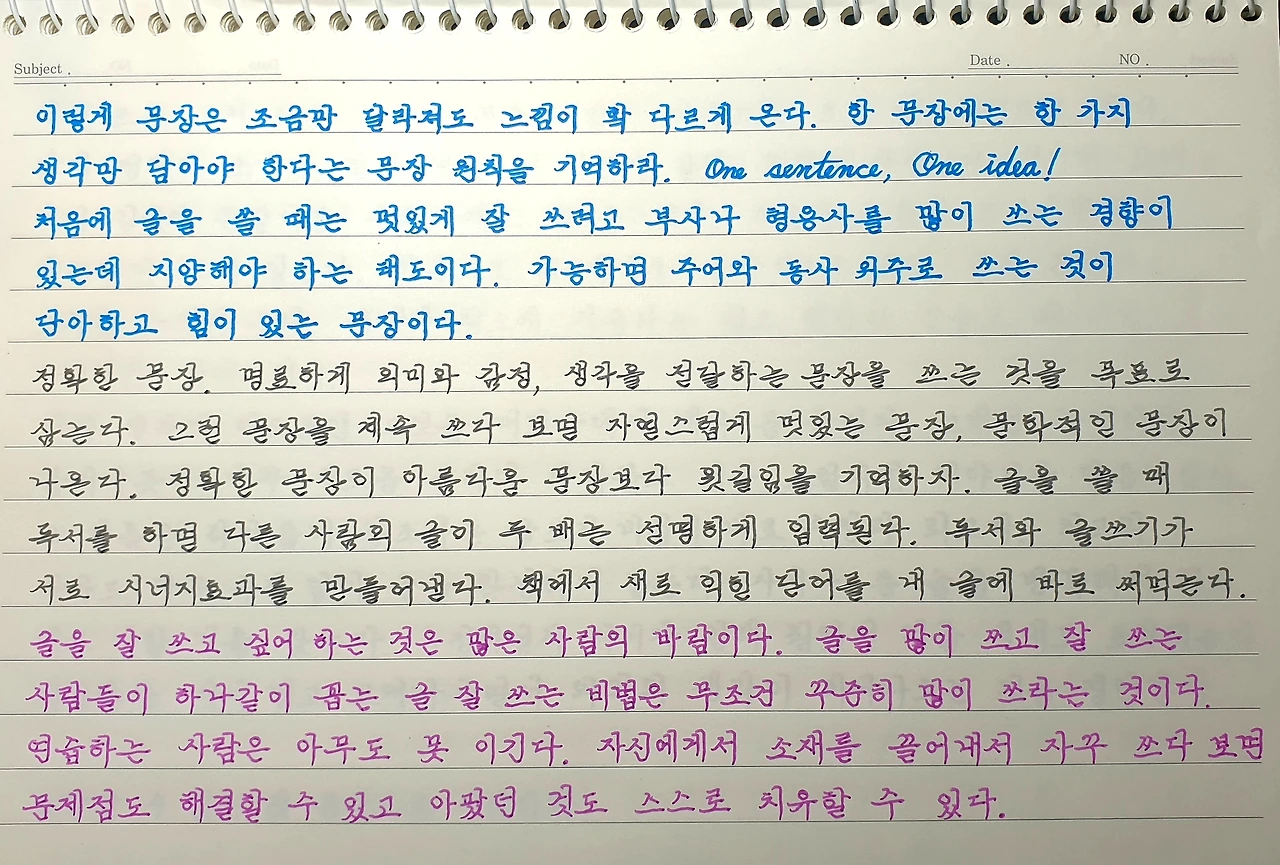 Subject .
Date .
NO .
이렇게 문장은 조금만 달라져도 느낌이 확 다르게 온다. 한 문장에는 한 가지
생각만 담아야 한다는 문장 원칙을 기억하라. One sentence, One idea!
처음에 글을 쓸 때는 멋있게 잘 쓰려고 부사나 형용사를 많이 쓰는 경향이
있는데 지양해야 하는 태도이다. 가능하면 주어와 동사 위주로 쓰는 것이
단아하고 힘이 있는 문장이다.
정확한 문장. 명료하게 의미와 감정, 생각을 전달하는 문장을 쓰는 것을 목표로
삼는다. 그런 문장을 계속 쓰다 보면 자연스럽게 멋있는 문장, 문학적인 문장이
나온다. 정확한 문장이 아름다운 문장보다 윗길임을 기억하자. 글을 쓸 때
독서를 하면 다른 사람의 글이 두 배는 선명하게 입력된다. 독서와 글쓰기가
서로 시너지효과를 만들어낸다. 책에서 새로 익힌 단어를 내 글에 바로 써먹는다.
글을 잘 쓰고 싶어 하는 것은 많은 사람의 바람이다. 글을 많이 쓰고 잘 쓰는
사람들이 하나같이 꼽는 글 잘 쓰는 비법은 무조건 꾸준히 많이 쓰라는 것이다.
연습하는 사람은 아무도 못 이긴다. 자신에게서 소재를 끌어내서 자꾸 쓰다 보면
문제점도 해결할 수 있고 아팠던 것도 스스로 치유할 수 있다.